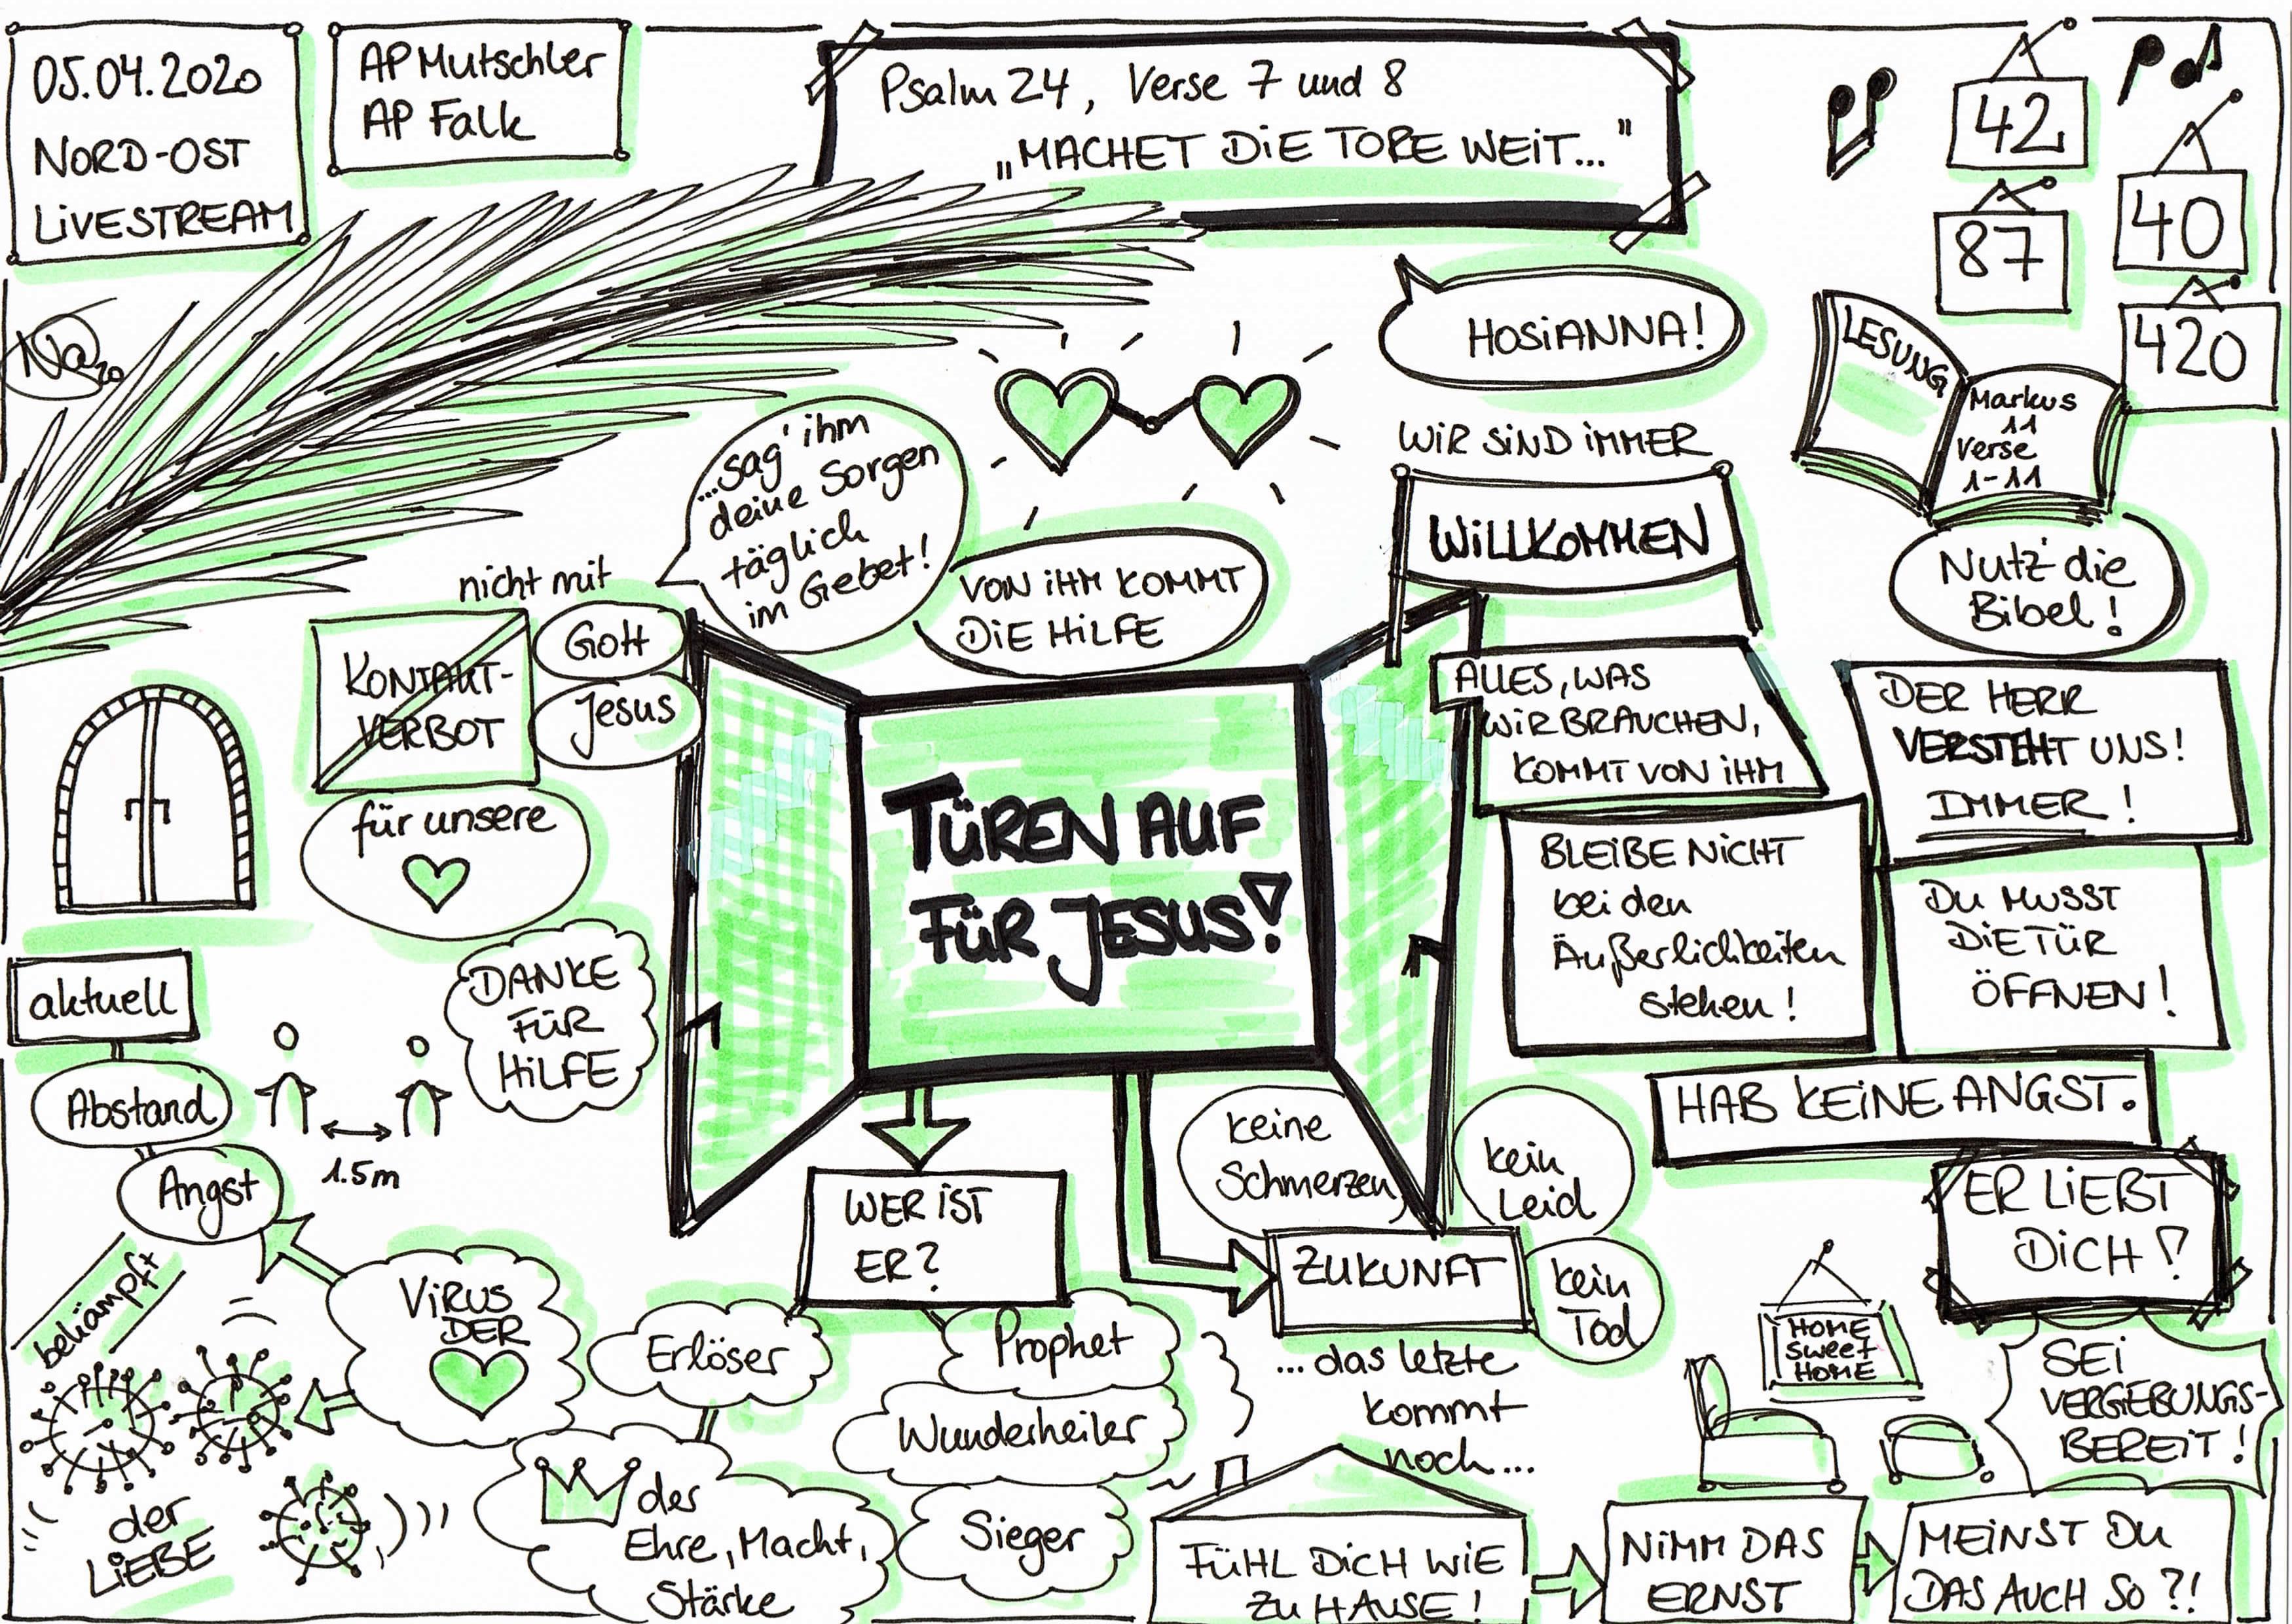 05.04.2020
NORD-OST
LIVESTREAM
AP Mutschler
AP Falk
Psalm 24, Verse 7 und 8
„MACHET DIE TORE WEIT..."
42
40
87
420
HOSIANNA!
LESUNG
Markus
11
Verse
1-11
Nutz' die
Bibel!
...sag' ihm
deine Sorgen
täglich
im Gebet!
VON IHM KOMMT
DIE HILFE
WIR SIND IMMER
WILLKOMMEN
nicht mit
KONTAKT-
VERBOT
Gott
Jesus
für unsere
DANKE
FÜR
HILFE
TÜREN AUF
FÜR JESUS!
ALLES, WAS
WIR BRAUCHEN,
KOMMT VON IHM
DER HERR
VERSTEHT UNS!
IMMER!
BLEIBE NICHT
bei den
Äußerlichkeiten
stehen!
DU MUSST
DIE TÜR
ÖFFNEN!
HAB KEINE ANGST.
ER LIEBT
DICH!
SEI
VERGEBUNGS-
BEREIT!
aktuell
Abstand
1.5m
Angst
bekämpft
VIRUS
DER
der
LIEBE
WER IST
ER?
Erlöser
Prophet
Wunderheiler
Sieger
der
Ehre, Macht,
Stärke
keine
Schmerzen
kein
Leid
ZUKUNFT
kein
Tod
...das letzte
kommt
noch...
HOME
SWEET
HOME
FÜHL DICH WIE
ZU HAUSE!
NIMM DAS
ERNST
MEINST DU
DAS AUCH SO?!